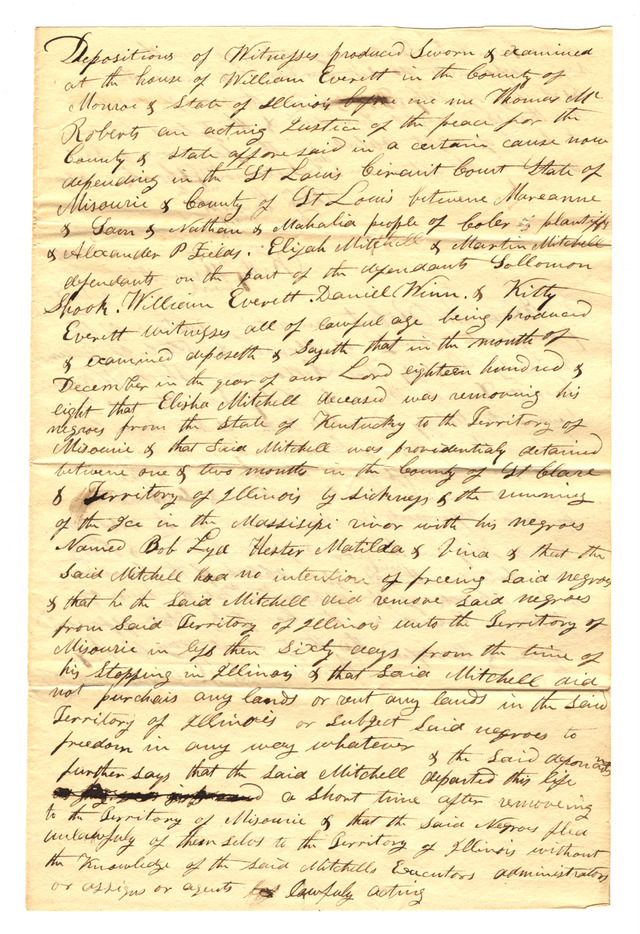 Depositions of Witnesses produced Sworn & examined
at the house of William Everett in the County of
Monroe & State of Illinois before me me Thomas Mc
Roberts an acting Justice of the peace for the
County & State affore said in a certain cause now
depending in the St Louis Circuit Court State of
Misourie & County of St Louis betweene Mareanne
& Sam & Nathan & Mahalia people of Coler is plantiffs
& Alexander P Fields. Elijah Mitchell & Martin Mitchell
defendants on the part of the defendants Sollomon
Shook. William Everett. Daniel Winn. & Kitty
Everett witnesses all of lawful age being produced
& examined deposeth & Sayeth that in the month of
December in the year of our Lord eighteen hundred &
eight that Elisha Mitchell deceased was removing his
negroes from the State of Kentucky to the Territory of
Misourie & that Said Mitchell was providentialy detained
betwene one & two months in the County of St Clare
& Territory of Illinois by sickness & the running
of the Ice in the Massisipi rivor with his negroes
Named Bob Lyd Hester Matilda & Vina & that the
Said Mitchell had no intention of freeing Said negroes
& that he the Said Mitchell did remove Said negroes
from Said Territory of Illinois unto the Territory of
Misourie in less then Sixty days from the time of
his Stopping in Illinois & that Said Mitchell did
not purchais any lands or rent any lands in the Said
Territory of Illinois or Subject Said negroes to
freedom in any way whatever & the Said deponants
further says that the Said Mitchell departed this life
a Short time after removeing
to the Territory of Misourie & that the Said Negroes fled
unlawfuly of them selvs to the Territory of Illinois without
the Knowledge of the Said Mitchells Executors administrators
or assigns or agents lawfuly acting